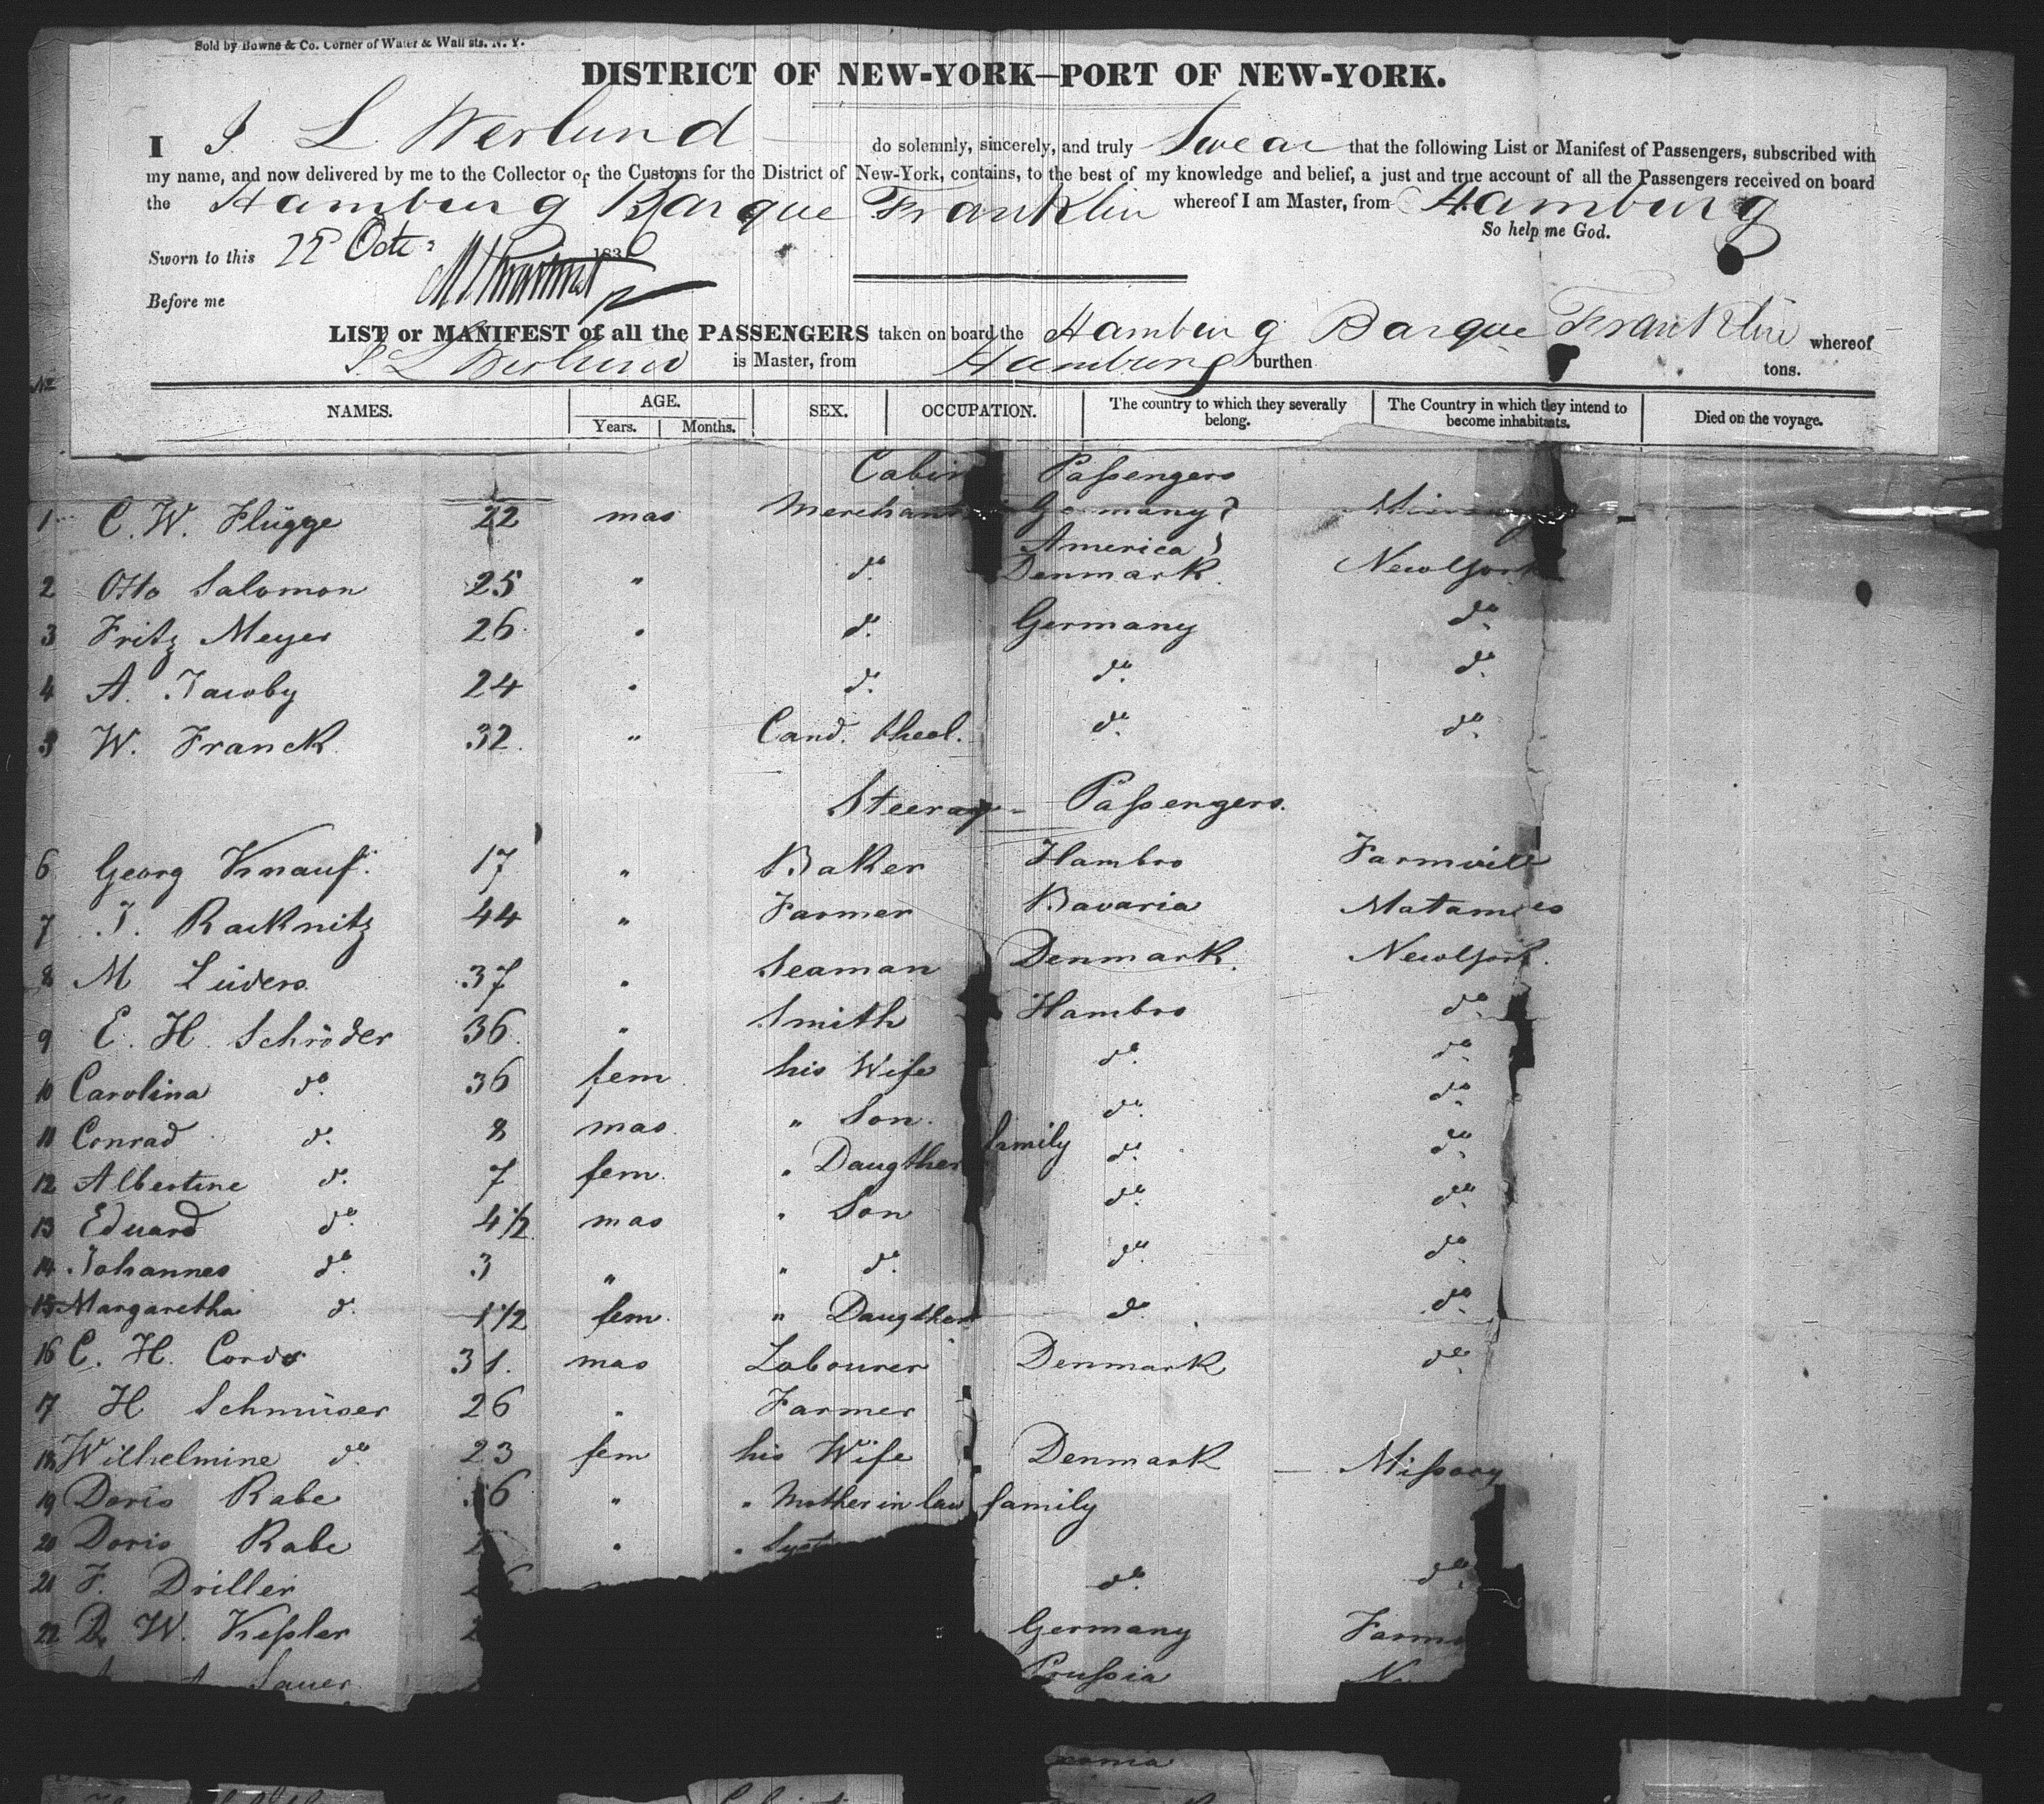 Sold by Bowne & Co. Corner of Water & Wall sts. N. Y.
DISTRICT OF NEW-YORK—PORT OF NEW-YORK.
I J. L Werlund do solemnly, sincerely, and truly Swear that the following List or Manifest of Passengers, subscribed with
my name, and now delivered by me to the Collector of the Customs for the District of New-York, contains, to the best of my knowledge and belief, a just and true account of all the Passengers received on board
the Hamburg Barque Franklin whereof I am Master, from Hamburg
So help me God.
Sworn to this 22 Octr 1836
Before me
LIST or MANIFEST of all the PASSENGERS taken on board the Hamburg Barque Franklin whereof
J. L Werlund is Master, from Hamburg burthen tons.
No NAMES. AGE. Years. Months. SEX. OCCUPATION. The country to which they severally belong. The Country in which they intend to become inhabitants. Died on the voyage.
Cabin Passengers
1 C. W. Flügge 22 mas Merchant Germany
America
2 Otto Salomon 25 " do Denmark. New York
3 Fritz Meyer 26 " do Germany do
4 A. Jacoby 24 " do do do
5 W. Franck 32 " Cand. theol. do do
Steerage Passengers.
6 Georg Knauf. 17 " Baker Hambro Farmville
7 J. Racknitz 44 " Farmer Bavaria
8 M Lüders 37 " Seaman Denmark. New York.
9 E. H. Schröder 36 " Smith Hambro do
10 Carolina do 36 fem his Wife do do
11 Conrad do 8 mas " Son do do
family
12 Albertine do 7 fem. " Daugther do do
13 Eduard do 4 1/2 mas " Son do do
14 Johannes do 3 " " do do do
15 Margaretha do 1 1/2 fem. " Daugther do do
16 C. H. Cords 31. mas Labourer Denmark do
17 H Schmüser 26 " Farmer
18 Wilhelmine do 23 fem his Wife Denmark — Missory
19 Doris Rabe 6 " " Mother in law family
20 Doris Rabe " "
21 F. Driller do do
22 D. W. Kessler Germany
Sauer Prussia